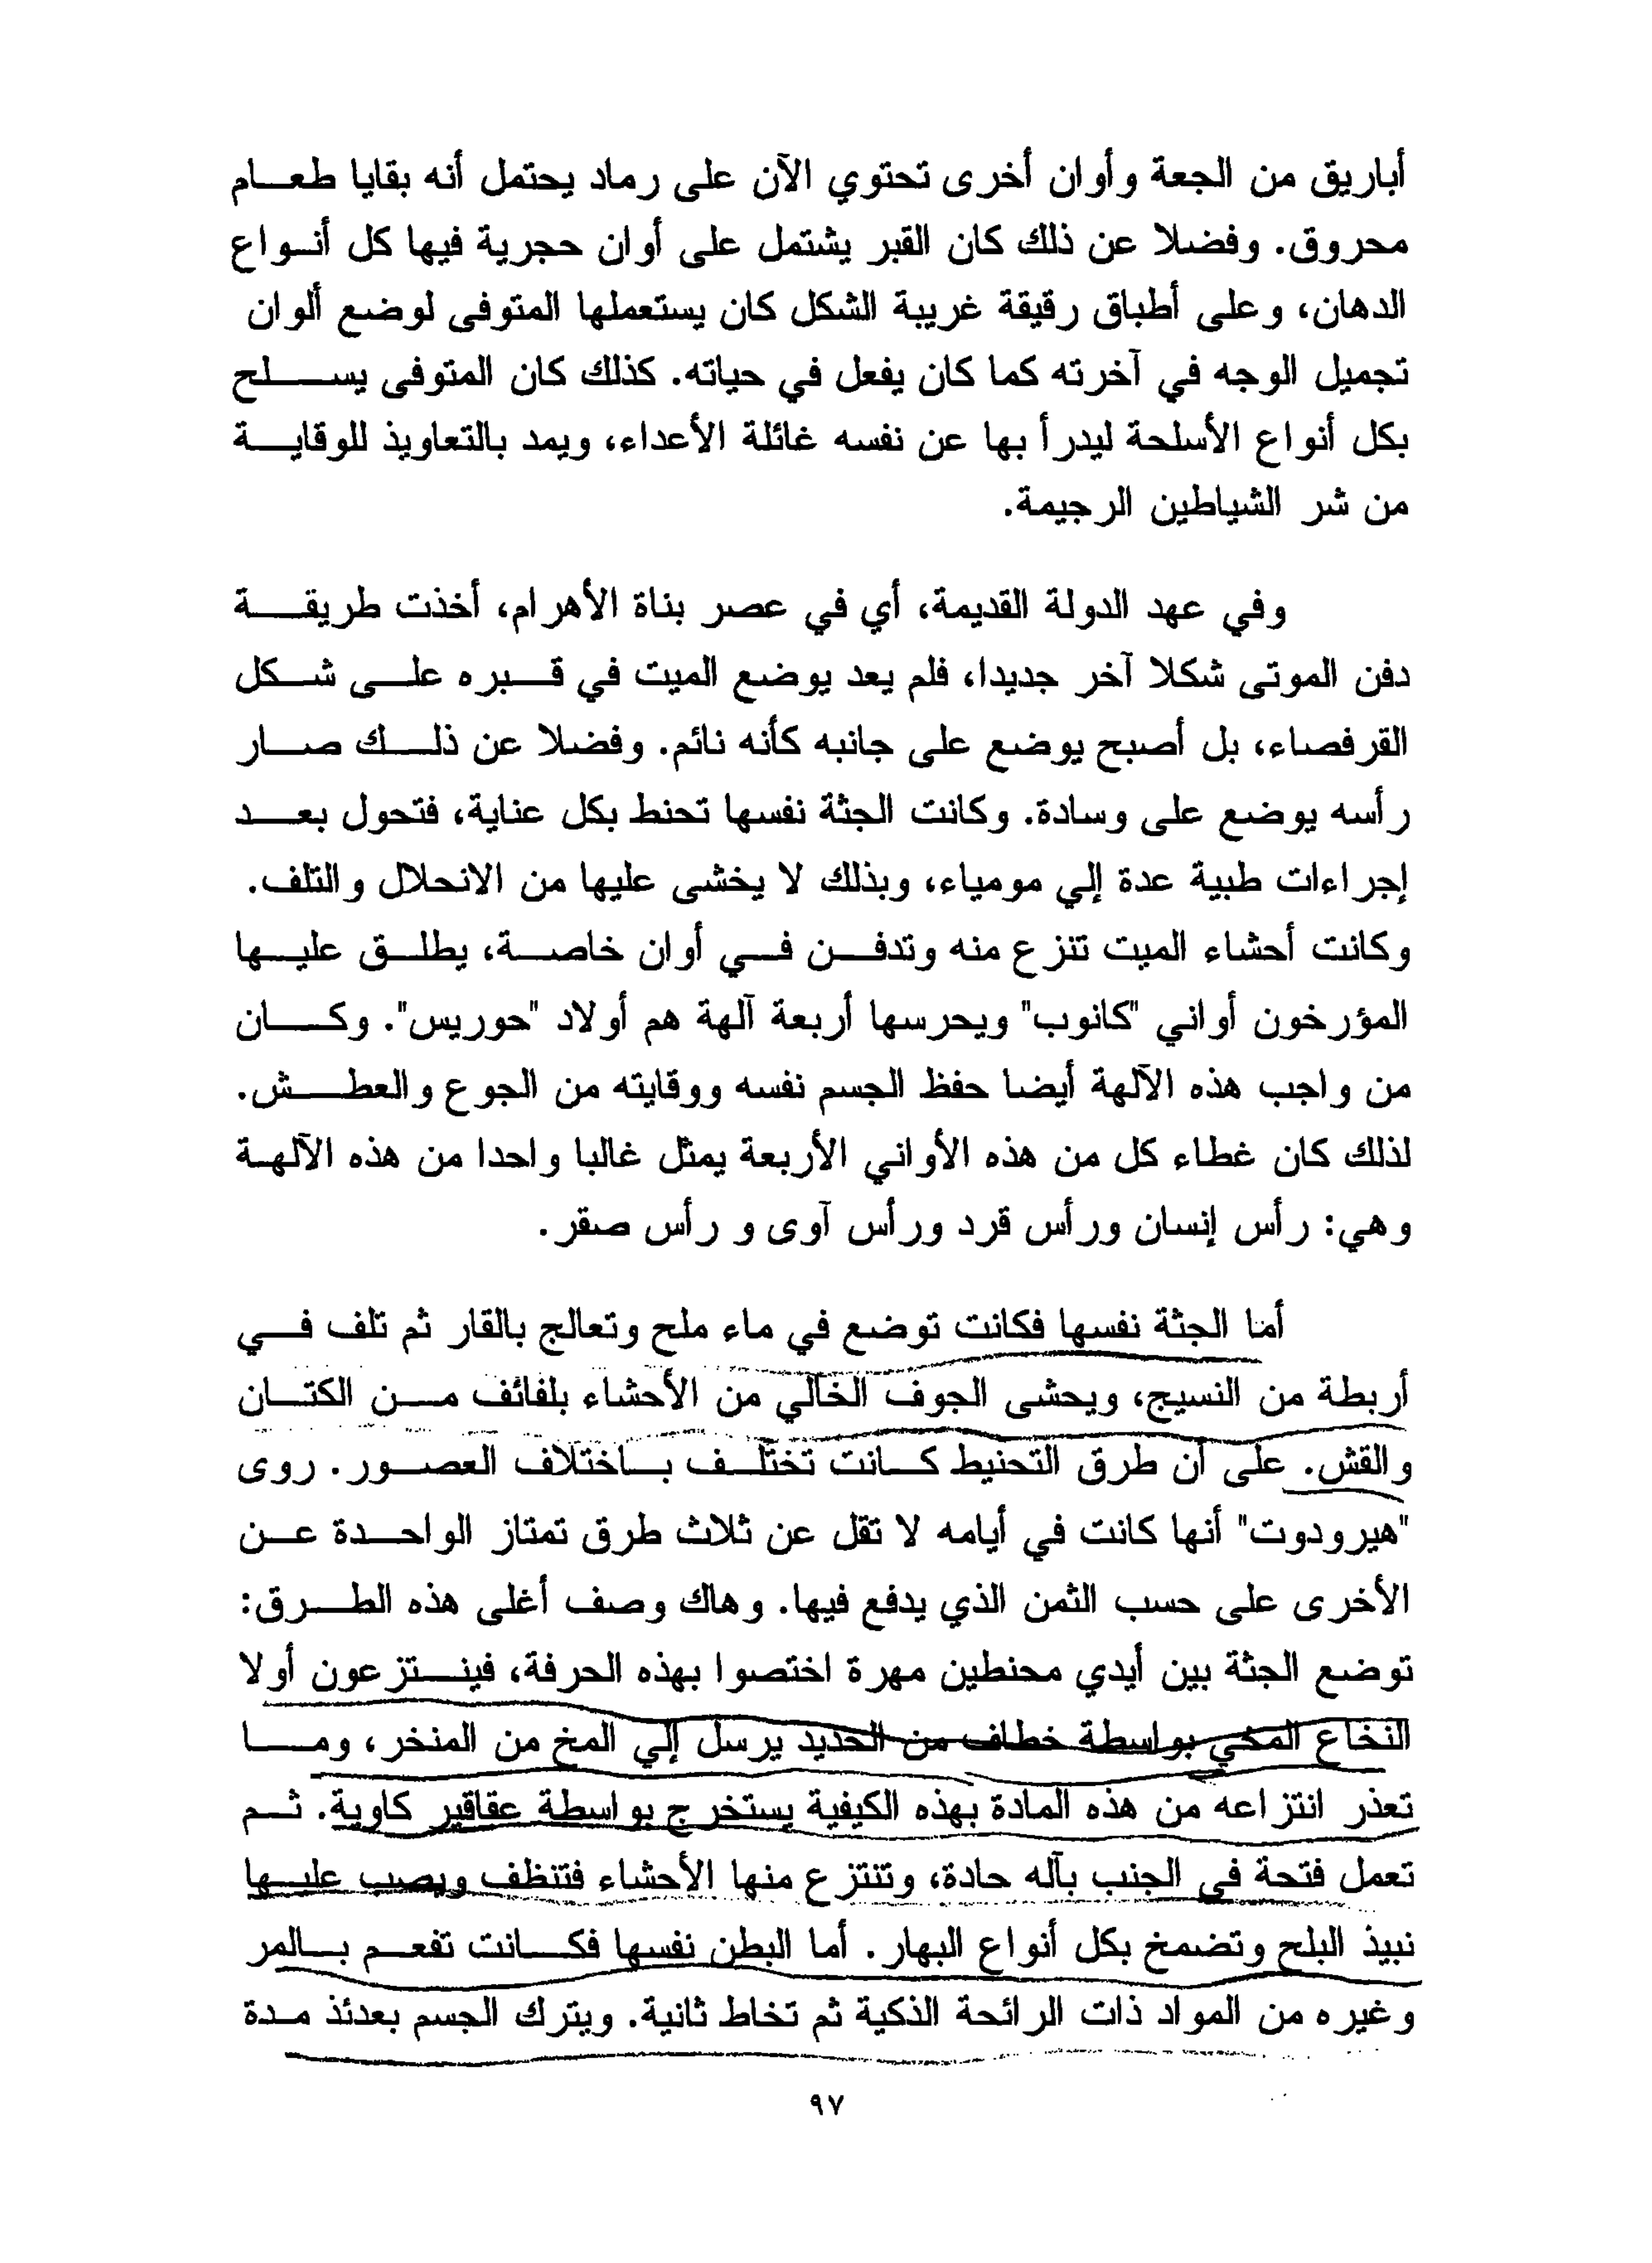 أباريق من الجعة وأوان أخرى تحتوي الآن على رماد يحتمل أنه بقايا طعام
محروق. وفضلا عن ذلك كان القبر يشتمل على أوان حجرية فيها كل أنواع
الدهان، وعلى أطباق رقيقة غريبة الشكل كان يستعملها المتوفى لوضع ألوان
تجميل الوجه في آخرته كما كان يفعل في حياته. كذلك كان المتوفى يسلح
بكل أنواع الأسلحة ليدرأ بها عن نفسه غائلة الأعداء، ويمد بالتعاويذ للوقاية
من شر الشياطين الرجيمة.
وفي عهد الدولة القديمة، أي في عصر بناة الأهرام، أخذت طريقة
دفن الموتى شكلا آخر جديدا، فلم يعد يوضع الميت في قبره على شكل
القرفصاء، بل أصبح يوضع على جانبه كأنه نائم. وفضلا عن ذلك صار
رأسه يوضع على وسادة. وكانت الجثة نفسها تحنط بكل عناية، فتحول بعد
إجراءات طبية عدة إلي مومياء، وبذلك لا يخشى عليها من الانحلال والتلف.
وكانت أحشاء الميت تنزع منه وتدفن في أوان خاصة، يطلق عليها
المؤرخون أواني "كانوب" ويحرسها أربعة آلهة هم أولاد "حوريس". وكان
من واجب هذه الآلهة أيضا حفظ الجسم نفسه ووقايته من الجوع والعطش.
لذلك كان غطاء كل من هذه الأواني الأربعة يمثل غالبا واحدا من هذه الآلهة
وهي: رأس إنسان ورأس قرد ورأس آوى و رأس صقر.
أما الجثة نفسها فكانت توضع في ماء ملح وتعالج بالقار ثم تلف في
أربطة من النسيج، ويحشى الجوف الخالي من الأحشاء بلفائف من الكتان
والقش. على أن طرق التحنيط كانت تختلف باختلاف العصور. روى
"هيرودوت" أنها كانت في أيامه لا تقل عن ثلاث طرق تمتاز الواحدة عن
الأخرى على حسب الثمن الذي يدفع فيها. وهاك وصف أغلى هذه الطرق:
توضع الجثة بين أيدي محنطين مهرة اختصوا بهذه الحرفة، فينتزعون أولا
النخاع المخي بواسطة خطاف من الحديد يرسل إلي المخ من المنخر، وما
تعذر انتزاعه من هذه المادة بهذه الكيفية يستخرج بواسطة عقاقير كاوية. ثم
تعمل فتحة في الجنب بآله حادة، وتنتزع منها الأحشاء فتنظف ويصب عليها
نبيذ البلح وتضمخ بكل أنواع البهار. أما البطن نفسها فكانت تفعم بالمر
وغيره من المواد ذات الرائحة الذكية ثم تخاط ثانية. ويترك الجسم بعدئذ مدة
٩٧